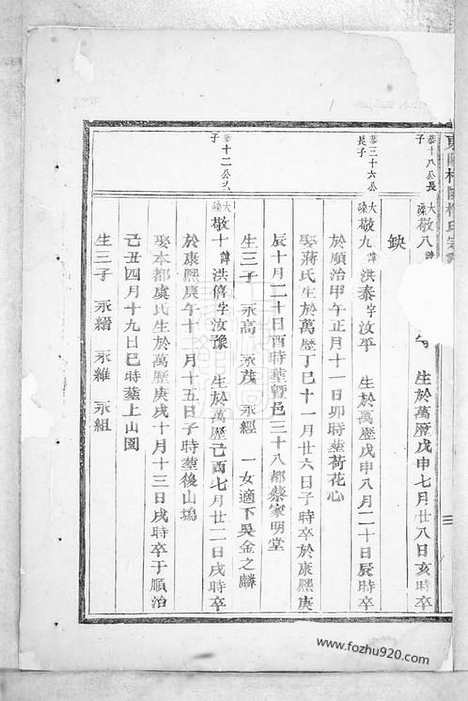 恭十八公長子
大溱敬八諱 生於萬歷戊申七月廿八日亥時卒
缺
恭三十六公長子
大溱敬九諱洪泰字汝平 生於萬歷戊申八月二十日辰時卒
於順治甲午正月十一日卯時塟荷花心
娶蔣氏生於萬歷丁巳十一月廿六日子時卒於康熙庚
辰十月二十日酉時塟暨邑三十八都蔡家明堂
生三子 永高 永茂 永經 一女適下吳金之麟
恭十二公次子
大溱敬十諱洪僖字汝豫 生於萬歷己酉七月廿二日戌時卒
於康熙庚午十二月十五日子時塟後山塢
娶本都虞氏生於萬歷庚戌十月十三日戌時卒于順治
己丑四月十九日巳時塟上山園
生三子 永縉 永維 永組
www.fozhu920.com